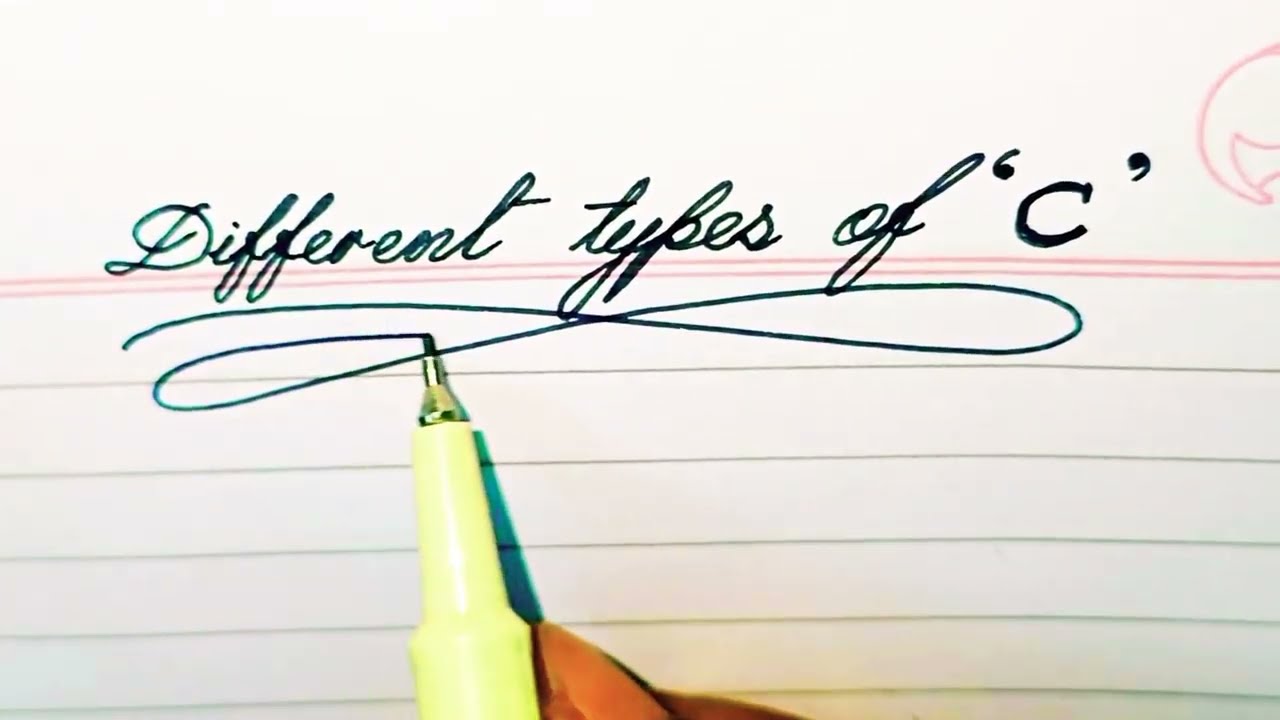 Different types of ‘C’